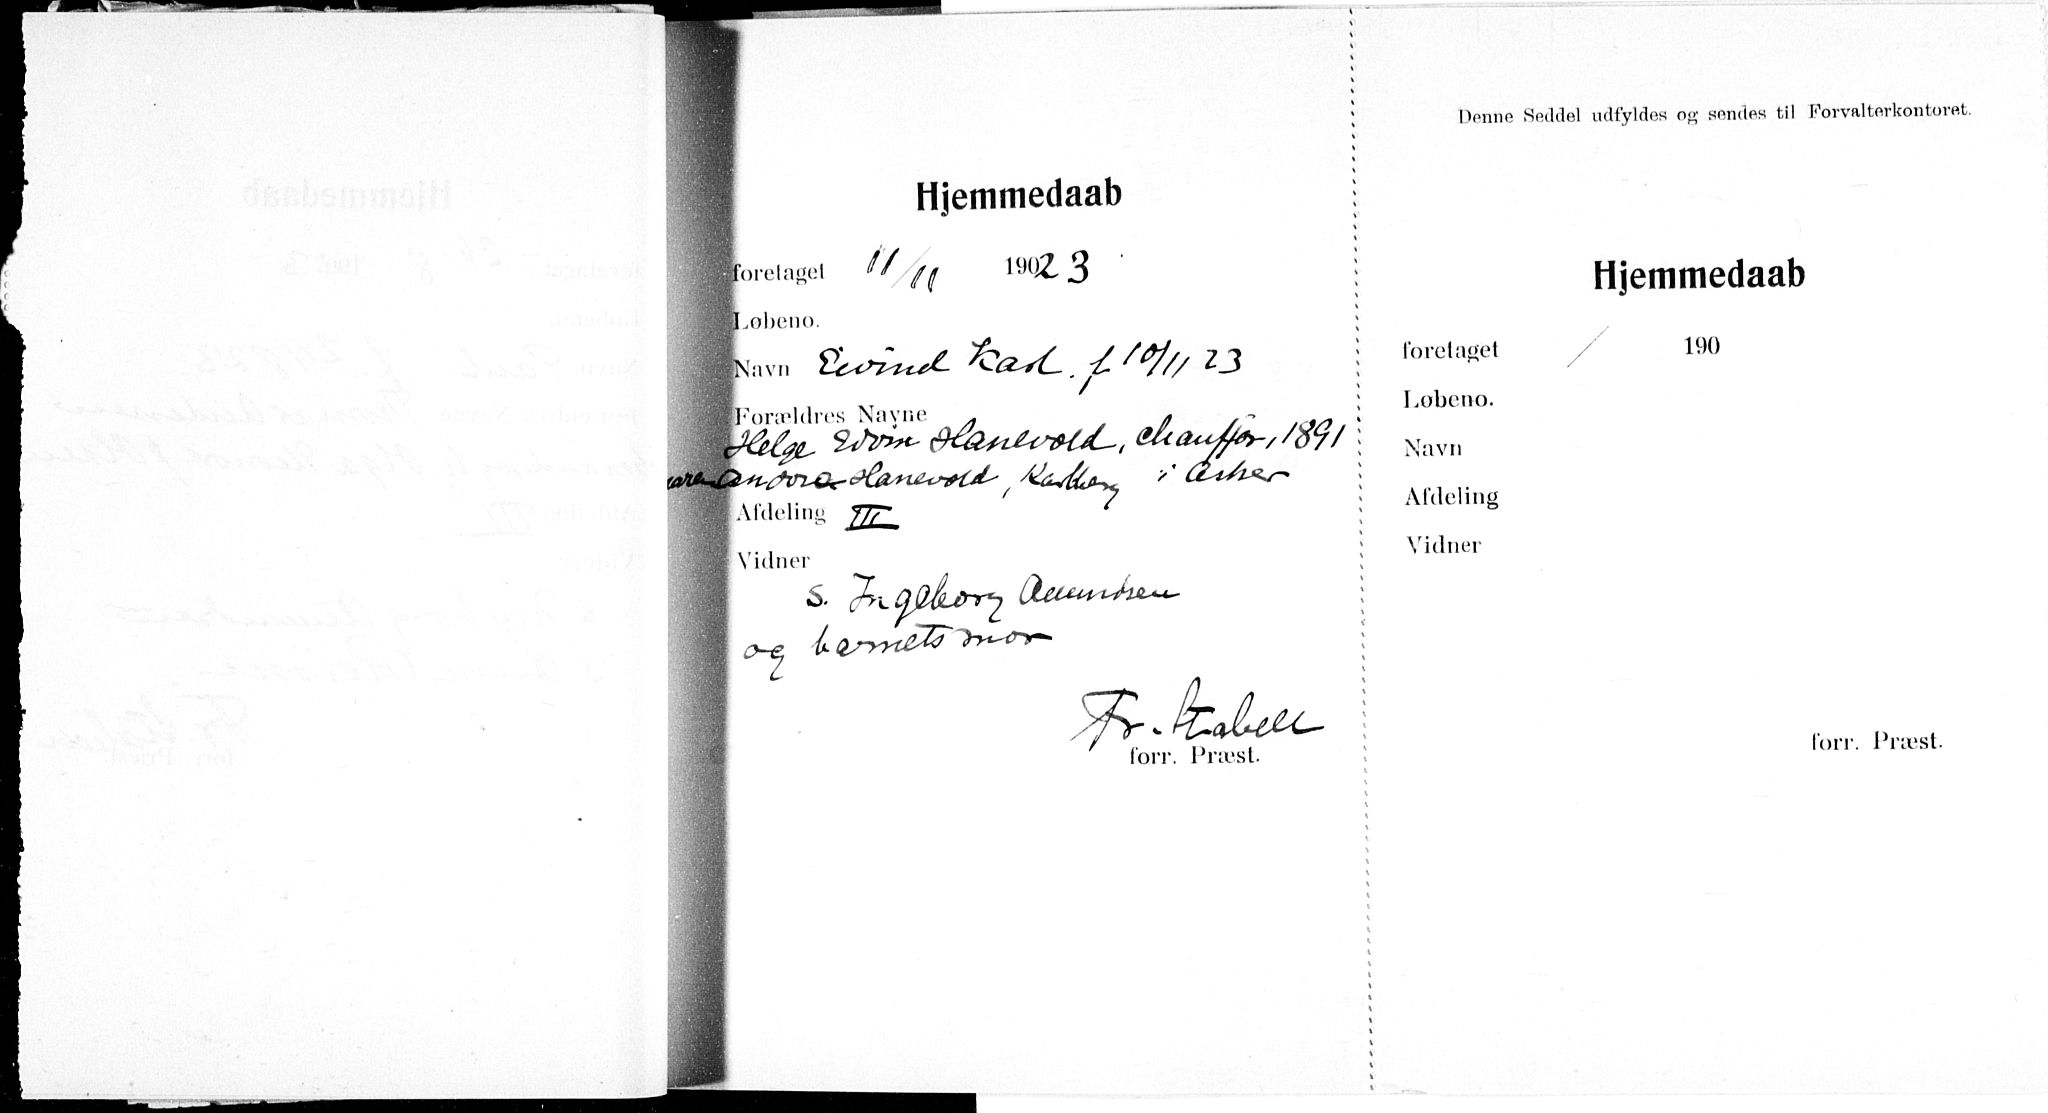 Hjemmedaab
foretaget 11/11 19023
Løbeno.
Navn Eivind Karl. f 10/11 23
Forældres Navne
Helge Edvin Hanevold, chauffør, 1891
Andora Hanevold, Karlberg i Asker
Afdeling III
Vidner
S. Ingeborg Amundsen
og barnets mor
Fr. Stabell
forr. Præst.
Denne Seddel udfyldes og sendes til Forvalterkontoret.
Hjemmedaab
foretaget / 190
Løbeno.
Navn
Afdeling
Vidner
forr. Præst.